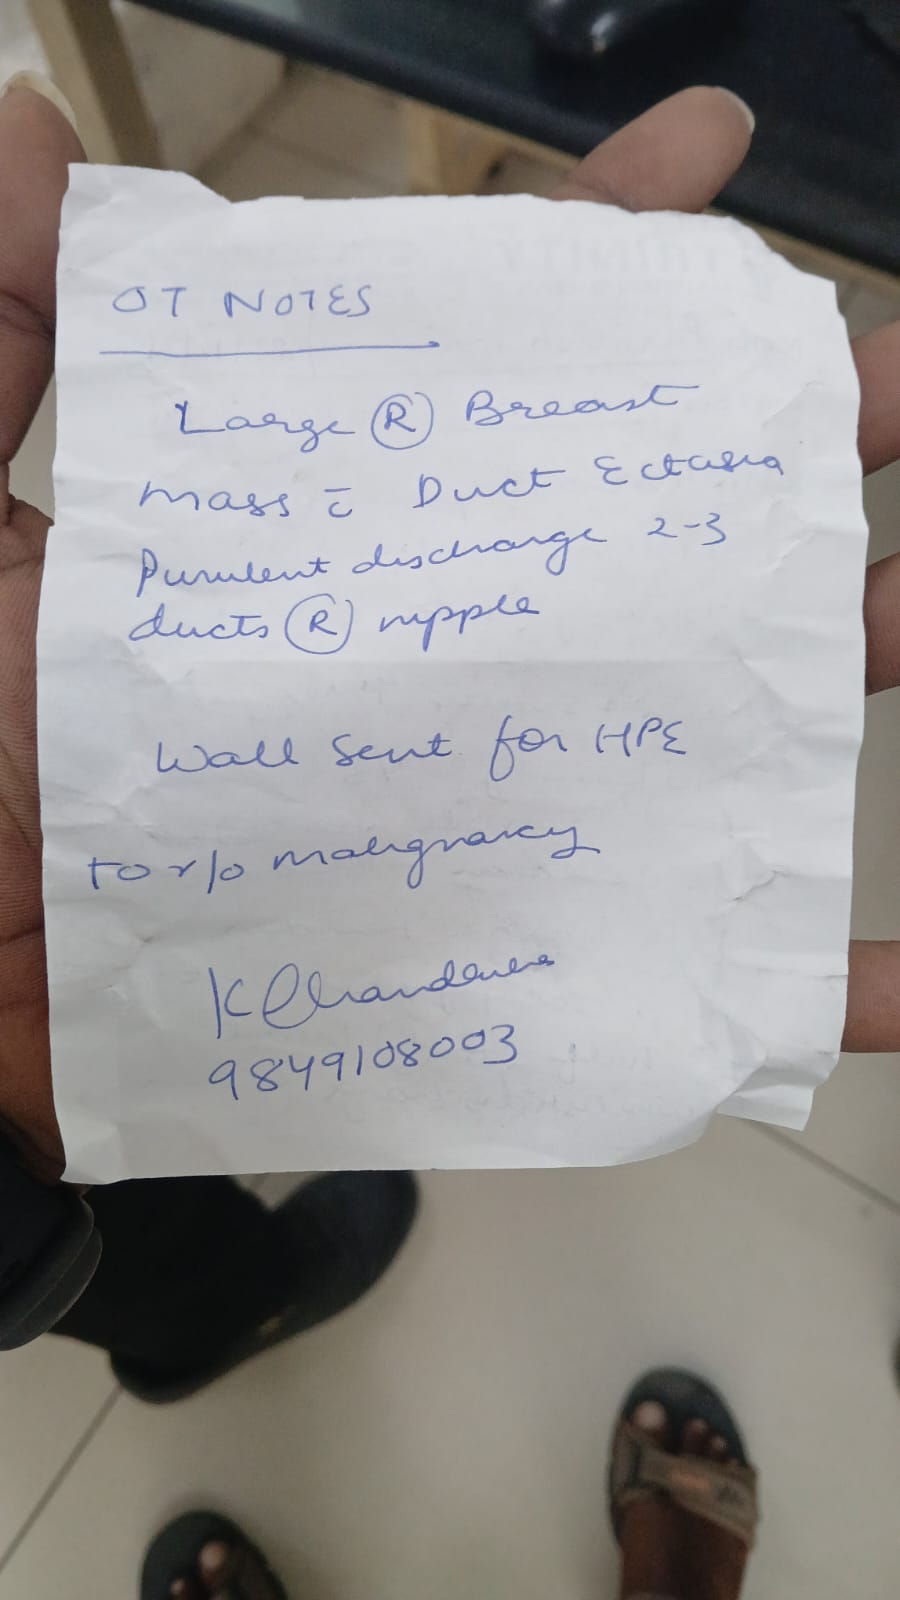 OT NOTES
Large Ⓡ Breast
mass c̄ Duct Ectasia
Purulent discharge 2-3
ducts Ⓡ nipple
Wall Sent for HPE
to r/o malignancy
9849108003